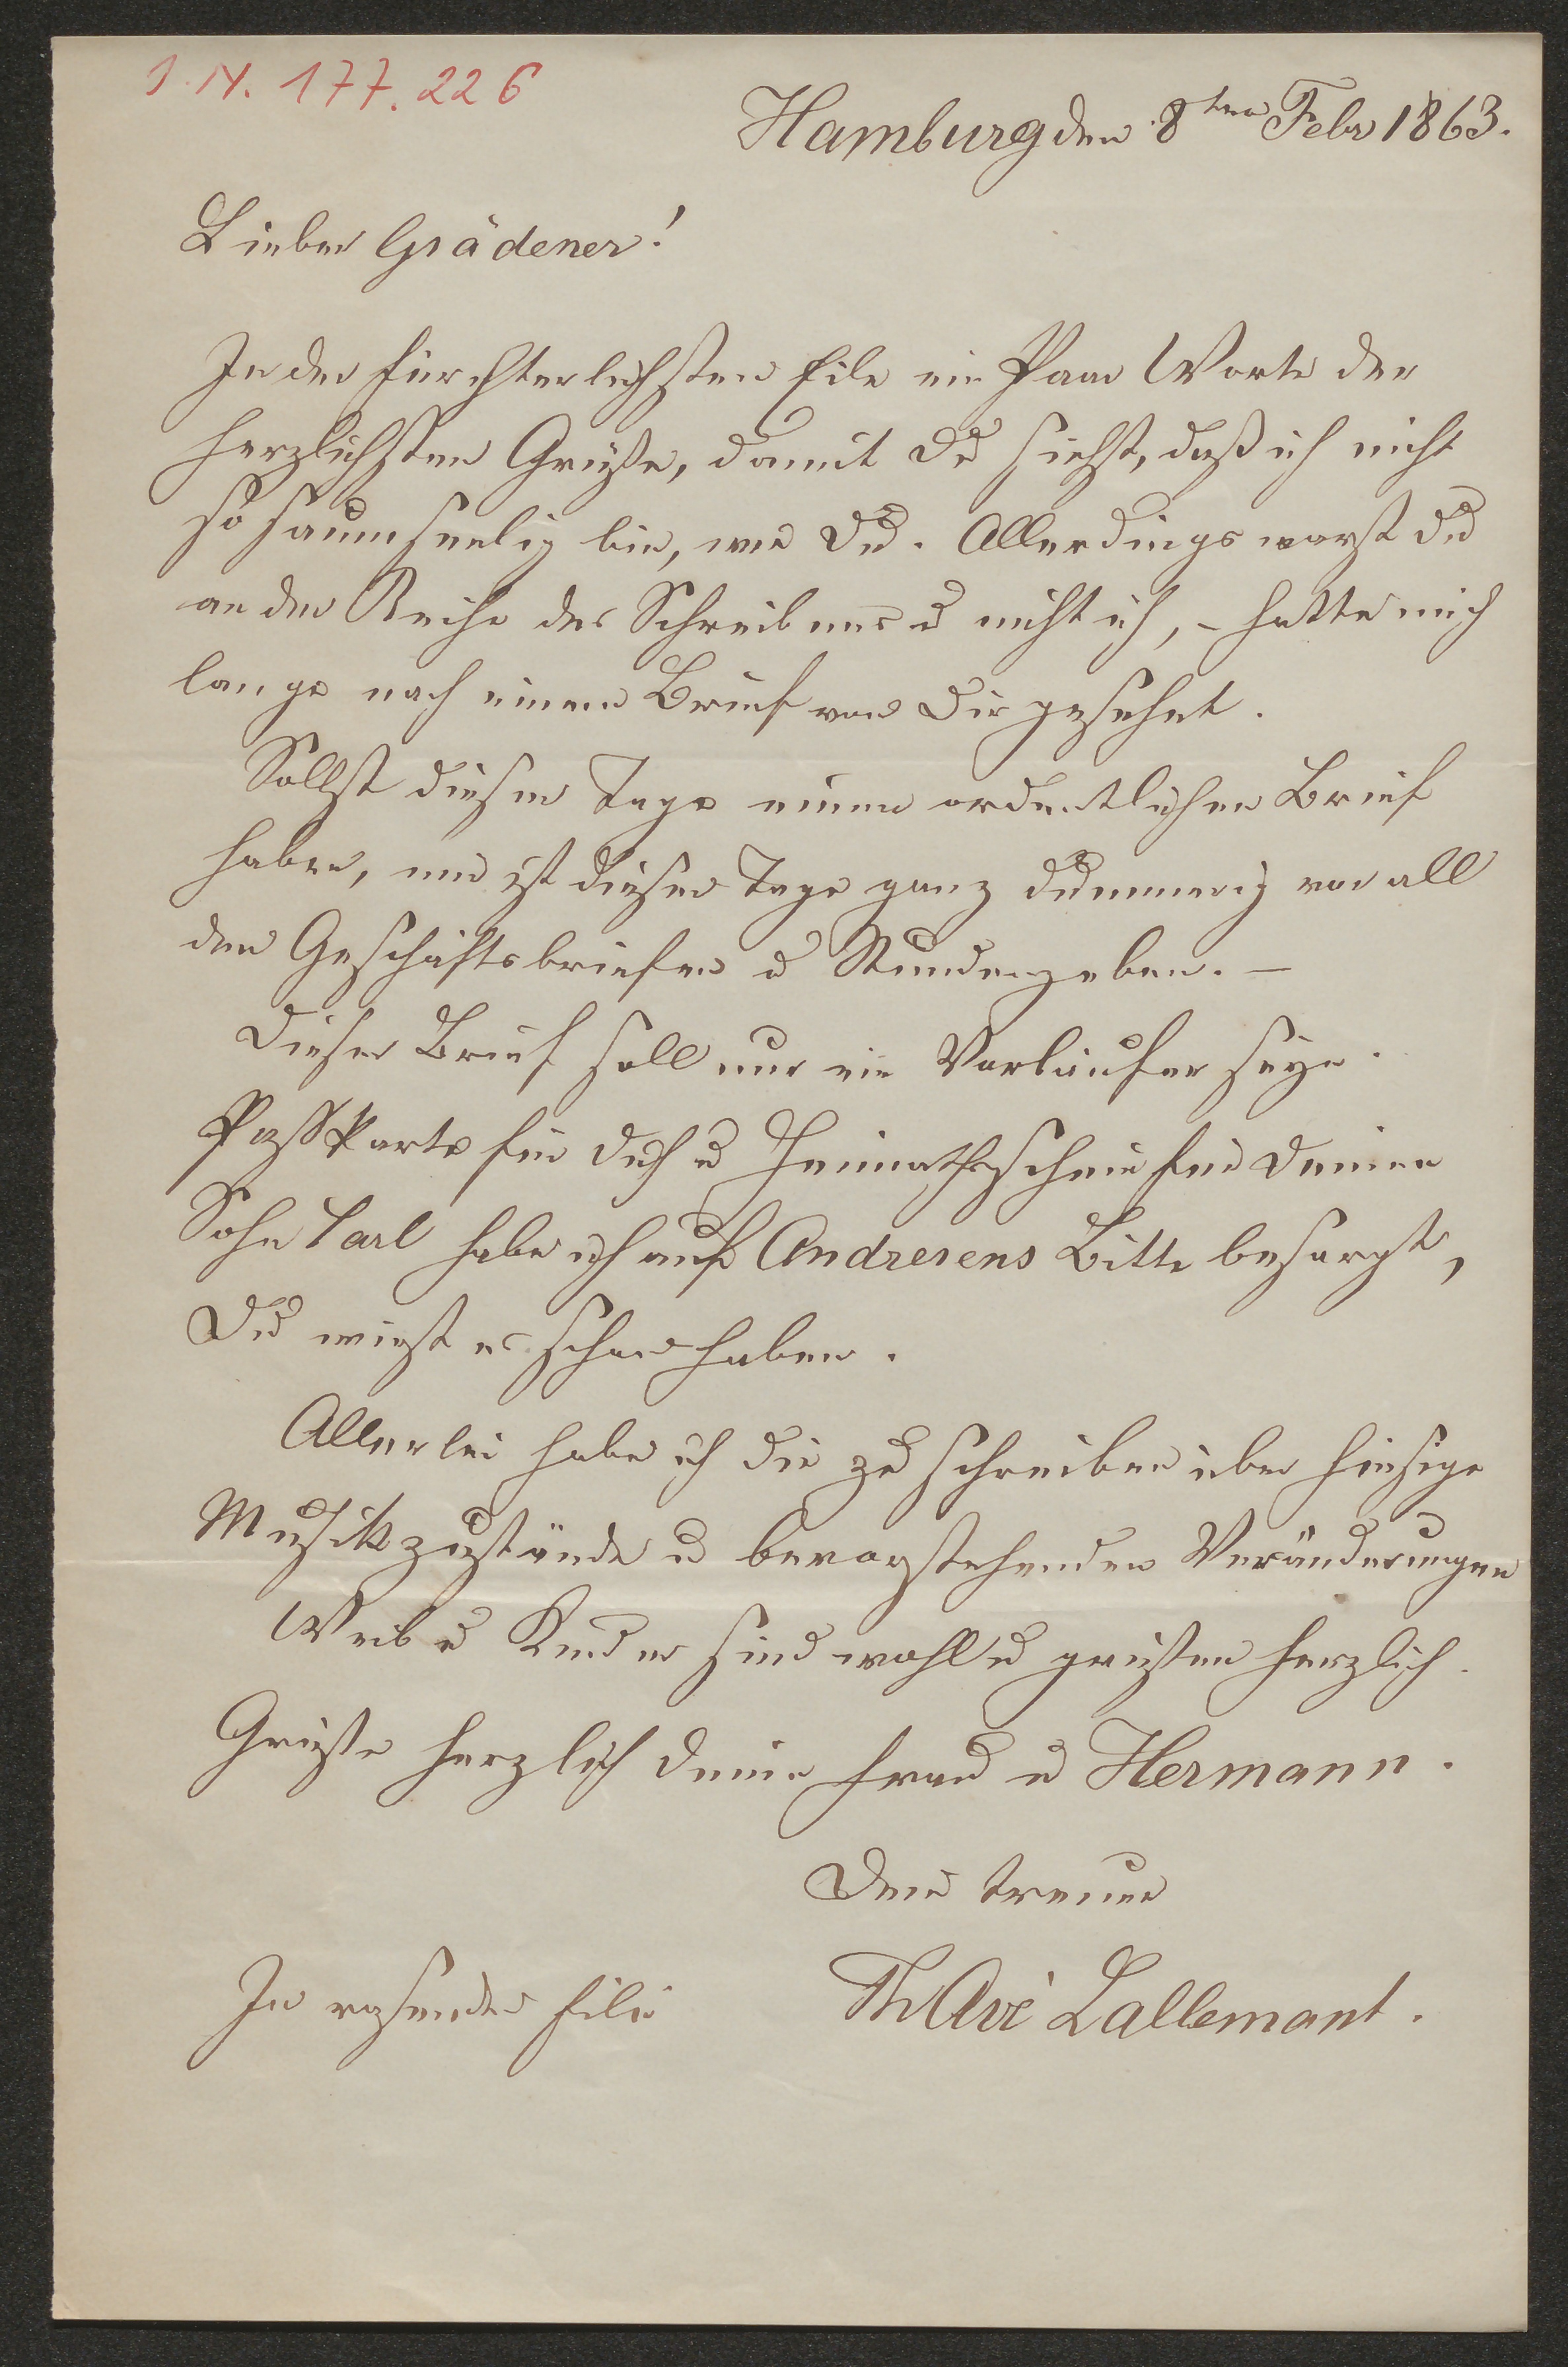 J. N. 177.226
Hamburg den 8ten Febr 1863.
Lieber Grädener!
In der fürchterlichsten Eile ein Paar Worte der
herzlichsten Grüße, damit Du siehst, daß ich nicht
so saumseelig bin, wie Du. Allerdings warst Du
an der Reihe des Schreibens u nicht ich, – hatte mich
lange nach einem Brief von Dir gesehnt.
Sollst dieser Tage einen ordentlichen Brief
haben, mir ist dieser Tage ganz dummerig von all
den Geschäftsbriefen u Stundengeben. –
Dieser Brief soll nur ein Vorläufer seyn.
Passkarte für Dich u Heimathsschein für Deinen
Sohn Carl habe ich auf Andresens Bitte besorgt,
Du wirst es schon haben.
Allerlei habe ich Dir zu schreiben über hiesige
Musikzustände u bevorstehenden Veränderungen
Weib u Kinder sind wohl u grüßen herzlich.
Grüße herzlich Deine Frau u Hermann.
Dein treuer
In rasender Eile
Th Avé Lallemant.